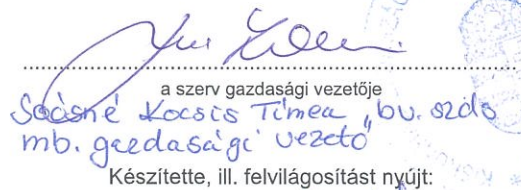 a szerv gazdasági vezetője
Soósné Kocsis Tímea „bv. szds
mb. gazdasági vezető”
Készítette, ill. felvilágosítást nyújt: